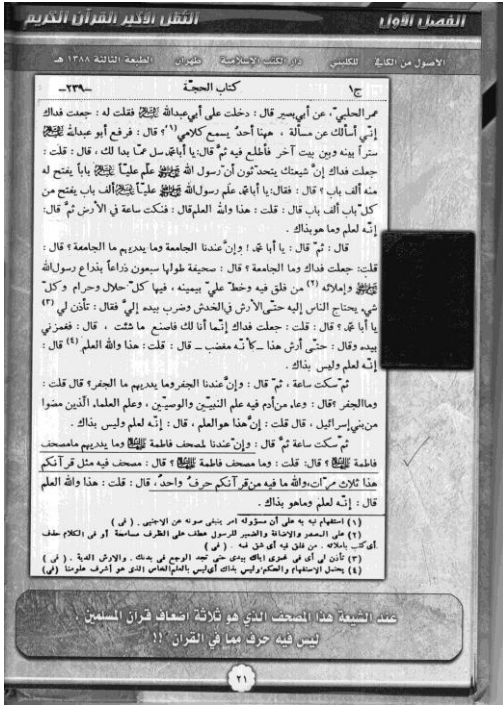 الفصل الأول
الثقل الأكبر القرآن الكريم
الأصول من الكافي للكليني دار الكتب الإسلامية طهران الطبعة الثالثة ١٣٨٨ هـ
ج١ كتاب الحجّة -٢٣٩-
عمر الحلبيّ، عن أبي بصير قال : دخلت على أبي عبدالله عليه السلام فقلت له : جعلت فداك
إنّي أسألك عن مسألة ، ههنا أحدٌ يسمع كلامي(١)؟ قال : فرفع أبو عبدالله عليه السلام
ستراً بينه وبين بيت آخر فاطلع فيه ثمَّ قال: يا أبا محمد سل عمّا بدا لك ، قال : قلت :
جعلت فداك إنَّ شيعتك يتحدّثون أنَّ رسول الله صلى الله عليه وآله علّم عليّاً عليه السلام باباً يفتح له
منه ألف باب ؟ قال : فقال: يا أبا محمد علّم رسول الله صلى الله عليه وآله عليّاً عليه السلام ألف باب يفتح من
كلّ باب ألف باب قال : قلت : هذا والله العلم قال : فنكت ساعة في الأرض ثمَّ قال:
إنّه لعلم وما هو بذاك .
قال : ثمَّ قال : يا أبا محمد ! وإنَّ عندنا الجامعة وما يدريهم ما الجامعة ؟ قال :
قلت: جعلت فداك وما الجامعة ؟ قال : صحيفة طولها سبعون ذراعاً بذراع رسول الله
صلى الله عليه وآله وإملائه (٢) من فلق فيه وخطّ عليّ بيمينه ، فيها كلُّ حلال وحرام وكلُّ
شيء يحتاج الناس إليه حتّى الأرش في الخدش وضرب بيده إليَّ فقال : تأذن لي (٣)
يا أبا محمد ؟ قال : قلت : جعلت فداك إنّما أنا لك فاصنع ما شئت ، قال : فغمزني
بيده وقال : حتّى أرش هذا - كأنّه مغضب - قال : قلت : هذا والله العلم (٤) قال :
إنّه لعلم وليس بذاك .
ثمَّ سكت ساعة ، ثمَّ قال : وإنَّ عندنا الجفر وما يدريهم ما الجفر ؟ قال قلت :
وما الجفر ؟ قال : وعاء من أدم فيه علم النبيّين والوصيّين ، وعلم العلماء الّذين مضوا
من بني إسرائيل ، قال قلت : إنَّ هذا هو العلم ، قال : إنّه لعلم وليس بذاك .
ثمَّ سكت ساعة ثمَّ قال : وإنَّ عندنا لمصحف فاطمة عليها السلام وما يدريهم ما مصحف
فاطمة عليها السلام ؟ قال : قلت : وما مصحف فاطمة عليها السلام ؟ قال : مصحف فيه مثل قرآنكم
هذا ثلاث مرّات، والله ما فيه من قرآنكم حرفٌ واحدٌ، قال : قلت : هذا والله العلم
قال : إنّه لعلم وما هو بذاك .
(١) استفهام نبه به على أن مسؤوله أمر ينبغي صونه عن الاجنبي . (في)
(٢) على المصدر والاضافة والضمير للرسول عطف على الظرف مسامحة أو في الكلام حذف
أي كتب باملائه . من فلق فيه أي شق فمه . (في)
(٣) تأذن لي أي في غمزي إياك بيدي حتى تجد الوجع في بدنك . والارش الدية . (في)
(٤) يحتمل الاستفهام والحكم؛ وليس بذاك أي ليس بالعلم الخاص الذي هو أشرف علومنا (في)
عند الشيعة هذا المصحف الذي هو ثلاثة أضعاف قرآن المسلمين ،
ليس فيه حرف مما في القرآن !!
٢١